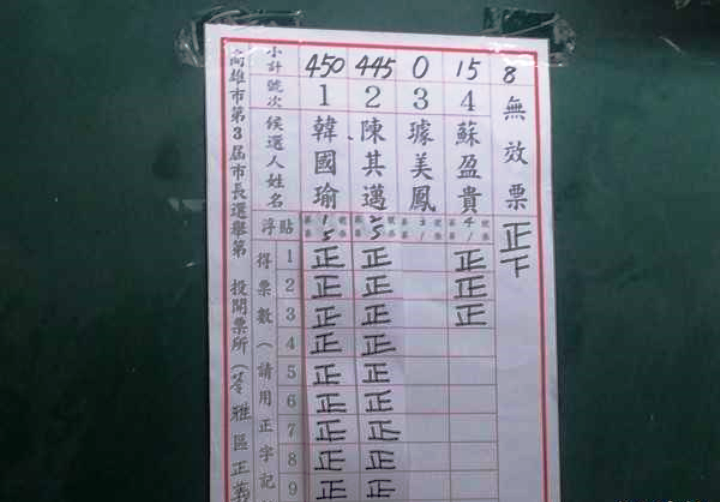 高雄市第3屆市長選舉第 投開票所(苓雅區正義
小計 450 445 0 15 8
號次 1 2 3 4 無效票
候選人姓名 韓國瑜 陳其邁 璩美鳳 蘇盈貴
浮貼
得票數(請用正字記
1 正 正 正 正
2 正 正 正 下
3 正 正 正
4 正 正
5 正 正
6 正 正
7 正 正
8 正 正
9 正 正